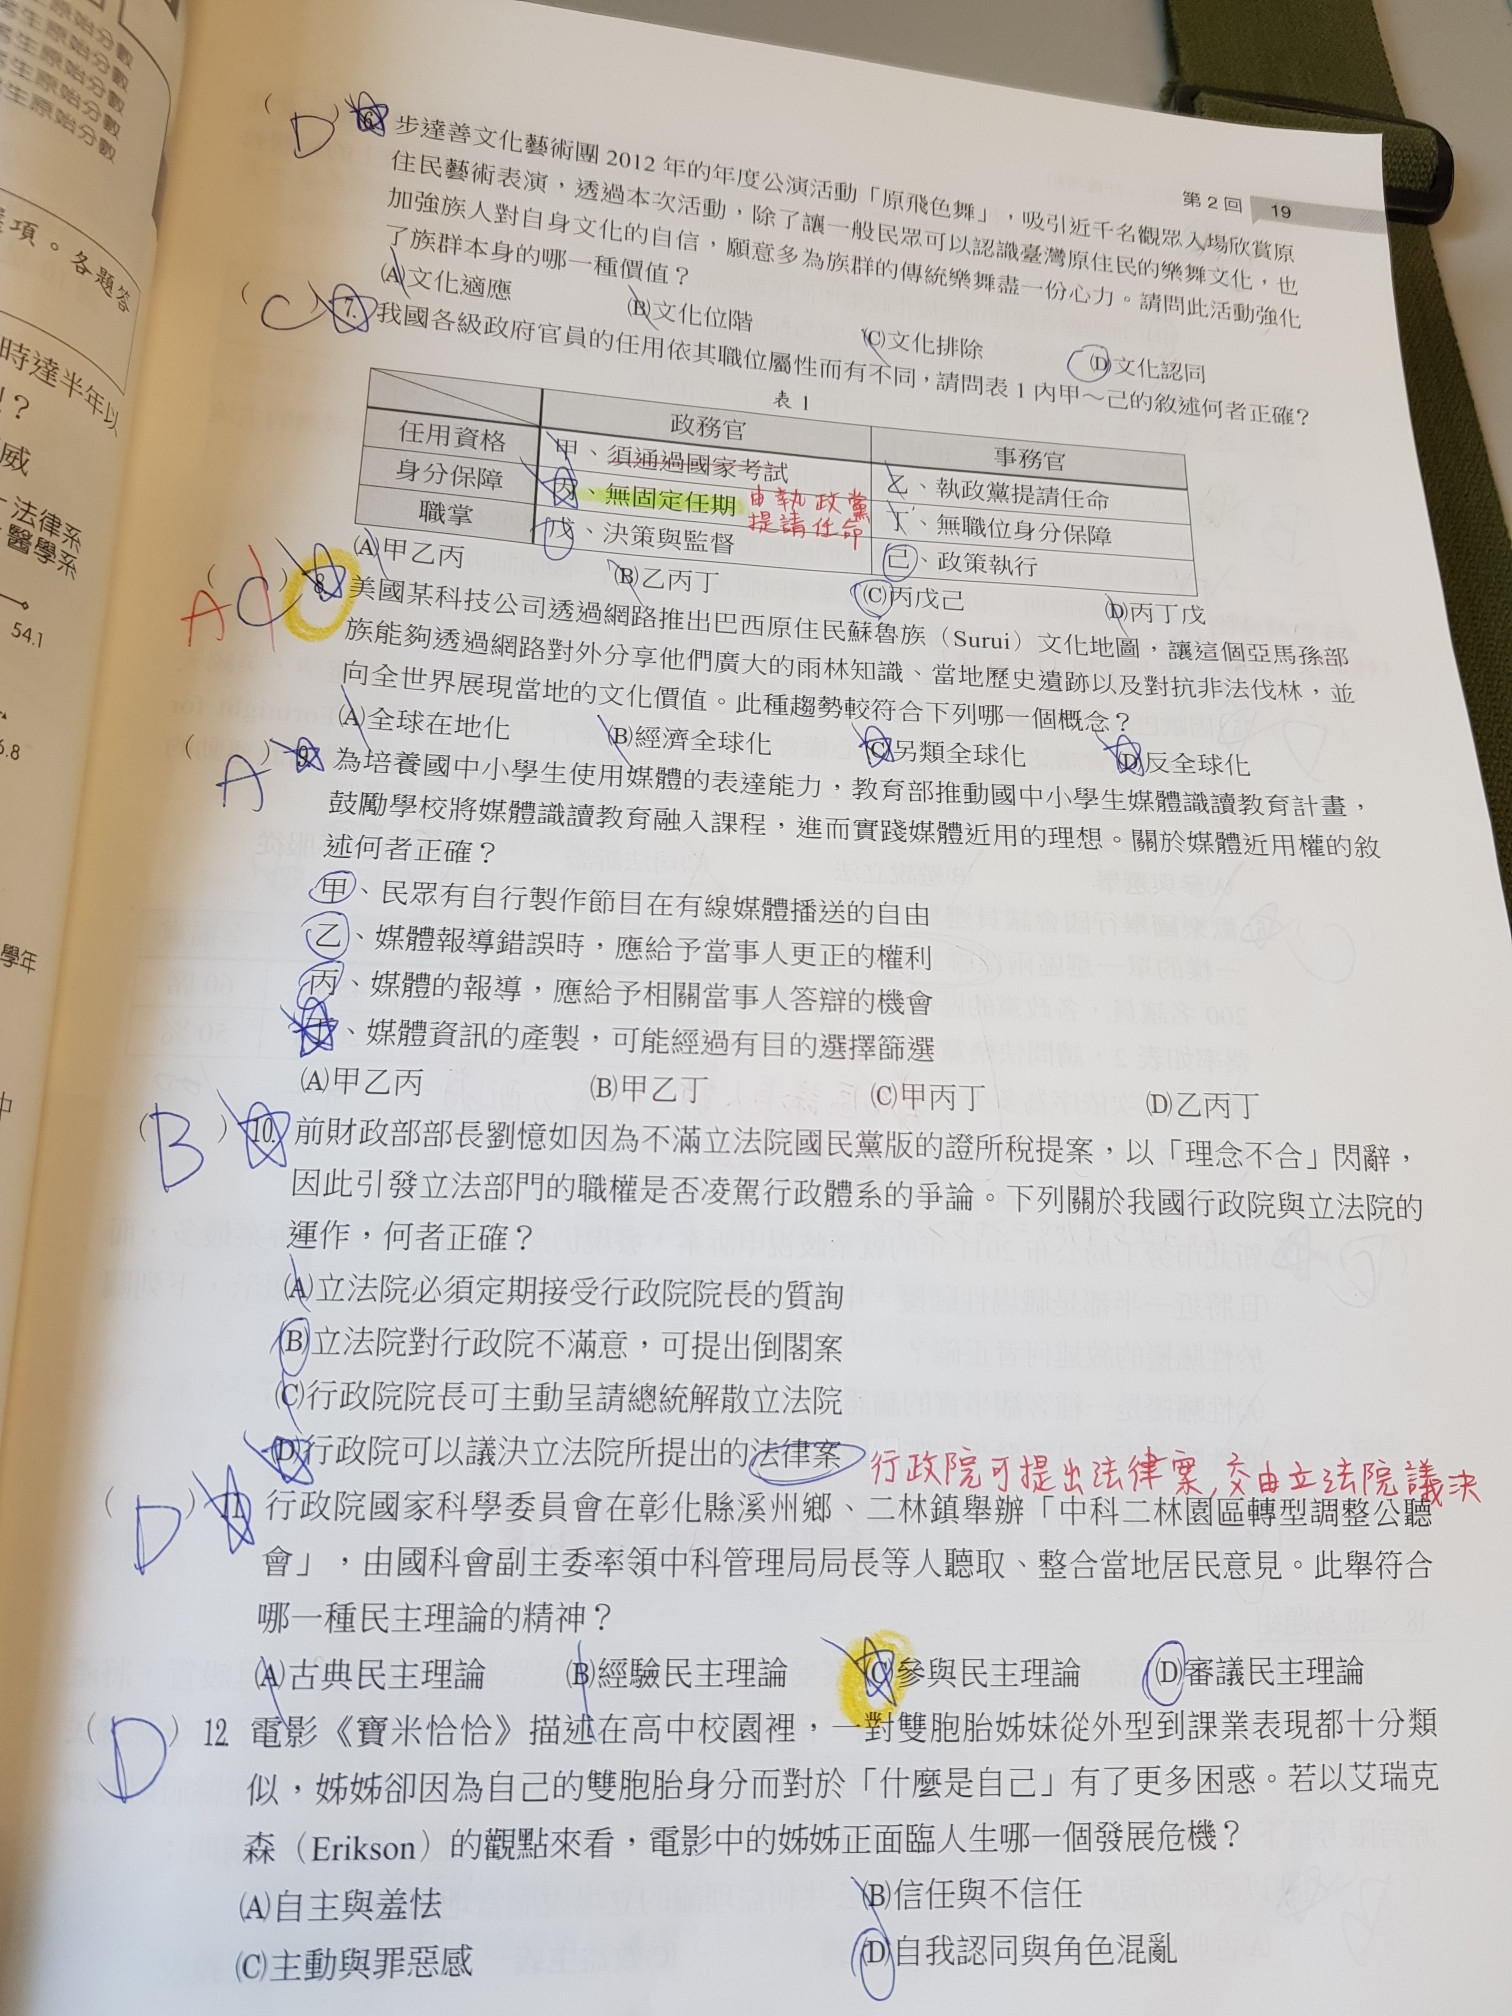 第2回 19
(D) 6. 步達善文化藝術團 2012 年的年度公演活動「原飛色舞」，吸引近千名觀眾入場欣賞原
住民藝術表演，透過本次活動，除了讓一般民眾可以認識臺灣原住民的樂舞文化，也
加強族人對自身文化的自信，願意多為族群的傳統樂舞盡一份心力。請問此活動強化
了族群本身的哪一種價值？
(A)文化適應 (B)文化位階 (C)文化排除 (D)文化認同
(C) 7. 我國各級政府官員的任用依其職位屬性而有不同，請問表 1 內甲～己的敘述何者正確？
表 1
政務官 事務官
任用資格 甲、須通過國家考試 乙、執政黨提請任命
身分保障 丙、無固定任期 由執政黨 丁、無職位身分保障
提請任命
職掌 戊、決策與監督 己、政策執行
(A)甲乙丙 (B)乙丙丁 (C)丙戊己 (D)丙丁戊
A (C) 8. 美國某科技公司透過網路推出巴西原住民蘇魯族（Surui）文化地圖，讓這個亞馬孫部
族能夠透過網路對外分享他們廣大的雨林知識、當地歷史遺跡以及對抗非法伐林，並
向全世界展現當地的文化價值。此種趨勢較符合下列哪一個概念？
(A)全球在地化 (B)經濟全球化 (C)另類全球化 (D)反全球化
(A) 9. 為培養國中小學生使用媒體的表達能力，教育部推動國中小學生媒體識讀教育計畫，
鼓勵學校將媒體識讀教育融入課程，進而實踐媒體近用的理想。關於媒體近用權的敘
述何者正確？
甲、民眾有自行製作節目在有線媒體播送的自由
乙、媒體報導錯誤時，應給予當事人更正的權利
丙、媒體的報導，應給予相關當事人答辯的機會
丁、媒體資訊的產製，可能經過有目的選擇篩選
(A)甲乙丙 (B)甲乙丁 (C)甲丙丁 (D)乙丙丁
(B) 10. 前財政部部長劉憶如因為不滿立法院國民黨版的證所稅提案，以「理念不合」閃辭，
因此引發立法部門的職權是否凌駕行政體系的爭論。下列關於我國行政院與立法院的
運作，何者正確？
(A)立法院必須定期接受行政院院長的質詢
(B)立法院對行政院不滿意，可提出倒閣案
(C)行政院院長可主動呈請總統解散立法院
(D)行政院可以議決立法院所提出的法律案 行政院可提出法律案，交由立法院議決
(D) 11. 行政院國家科學委員會在彰化縣溪州鄉、二林鎮舉辦「中科二林園區轉型調整公聽
會」，由國科會副主委率領中科管理局局長等人聽取、整合當地居民意見。此舉符合
哪一種民主理論的精神？
(A)古典民主理論 (B)經驗民主理論 (C)參與民主理論 (D)審議民主理論
(D) 12. 電影《寶米恰恰》描述在高中校園裡，一對雙胞胎姊妹從外型到課業表現都十分類
似，姊姊卻因為自己的雙胞胎身分而對於「什麼是自己」有了更多困惑。若以艾瑞克
森（Erikson）的觀點來看，電影中的姊姊正面臨人生哪一個發展危機？
(A)自主與羞怯 (B)信任與不信任
(C)主動與罪惡感 (D)自我認同與角色混亂
生原始分數
生原始分數
生原始分數
生原始分數
選項。各題答
時達半年以
威
法律系
醫學系
54.1
學年